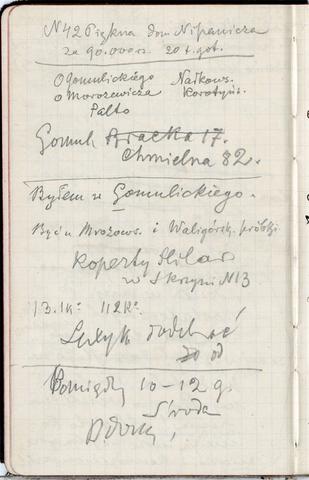 N 42 Piękna dom Nipanicza
za 90.000rs. 20 t. got.
O Gomulickiego Nałkows.
o Morozewicza Korotyńs.
Palto
Gomul. Bracka 17.
Chmielna 82.
Byłem u Gomulickiego.
Być u Mrozows. i Waligórsk. próbki
Koperty
w Skrzyni N 13
13.
odebrać
od
Pomiędzy 10-12 g.
Środa